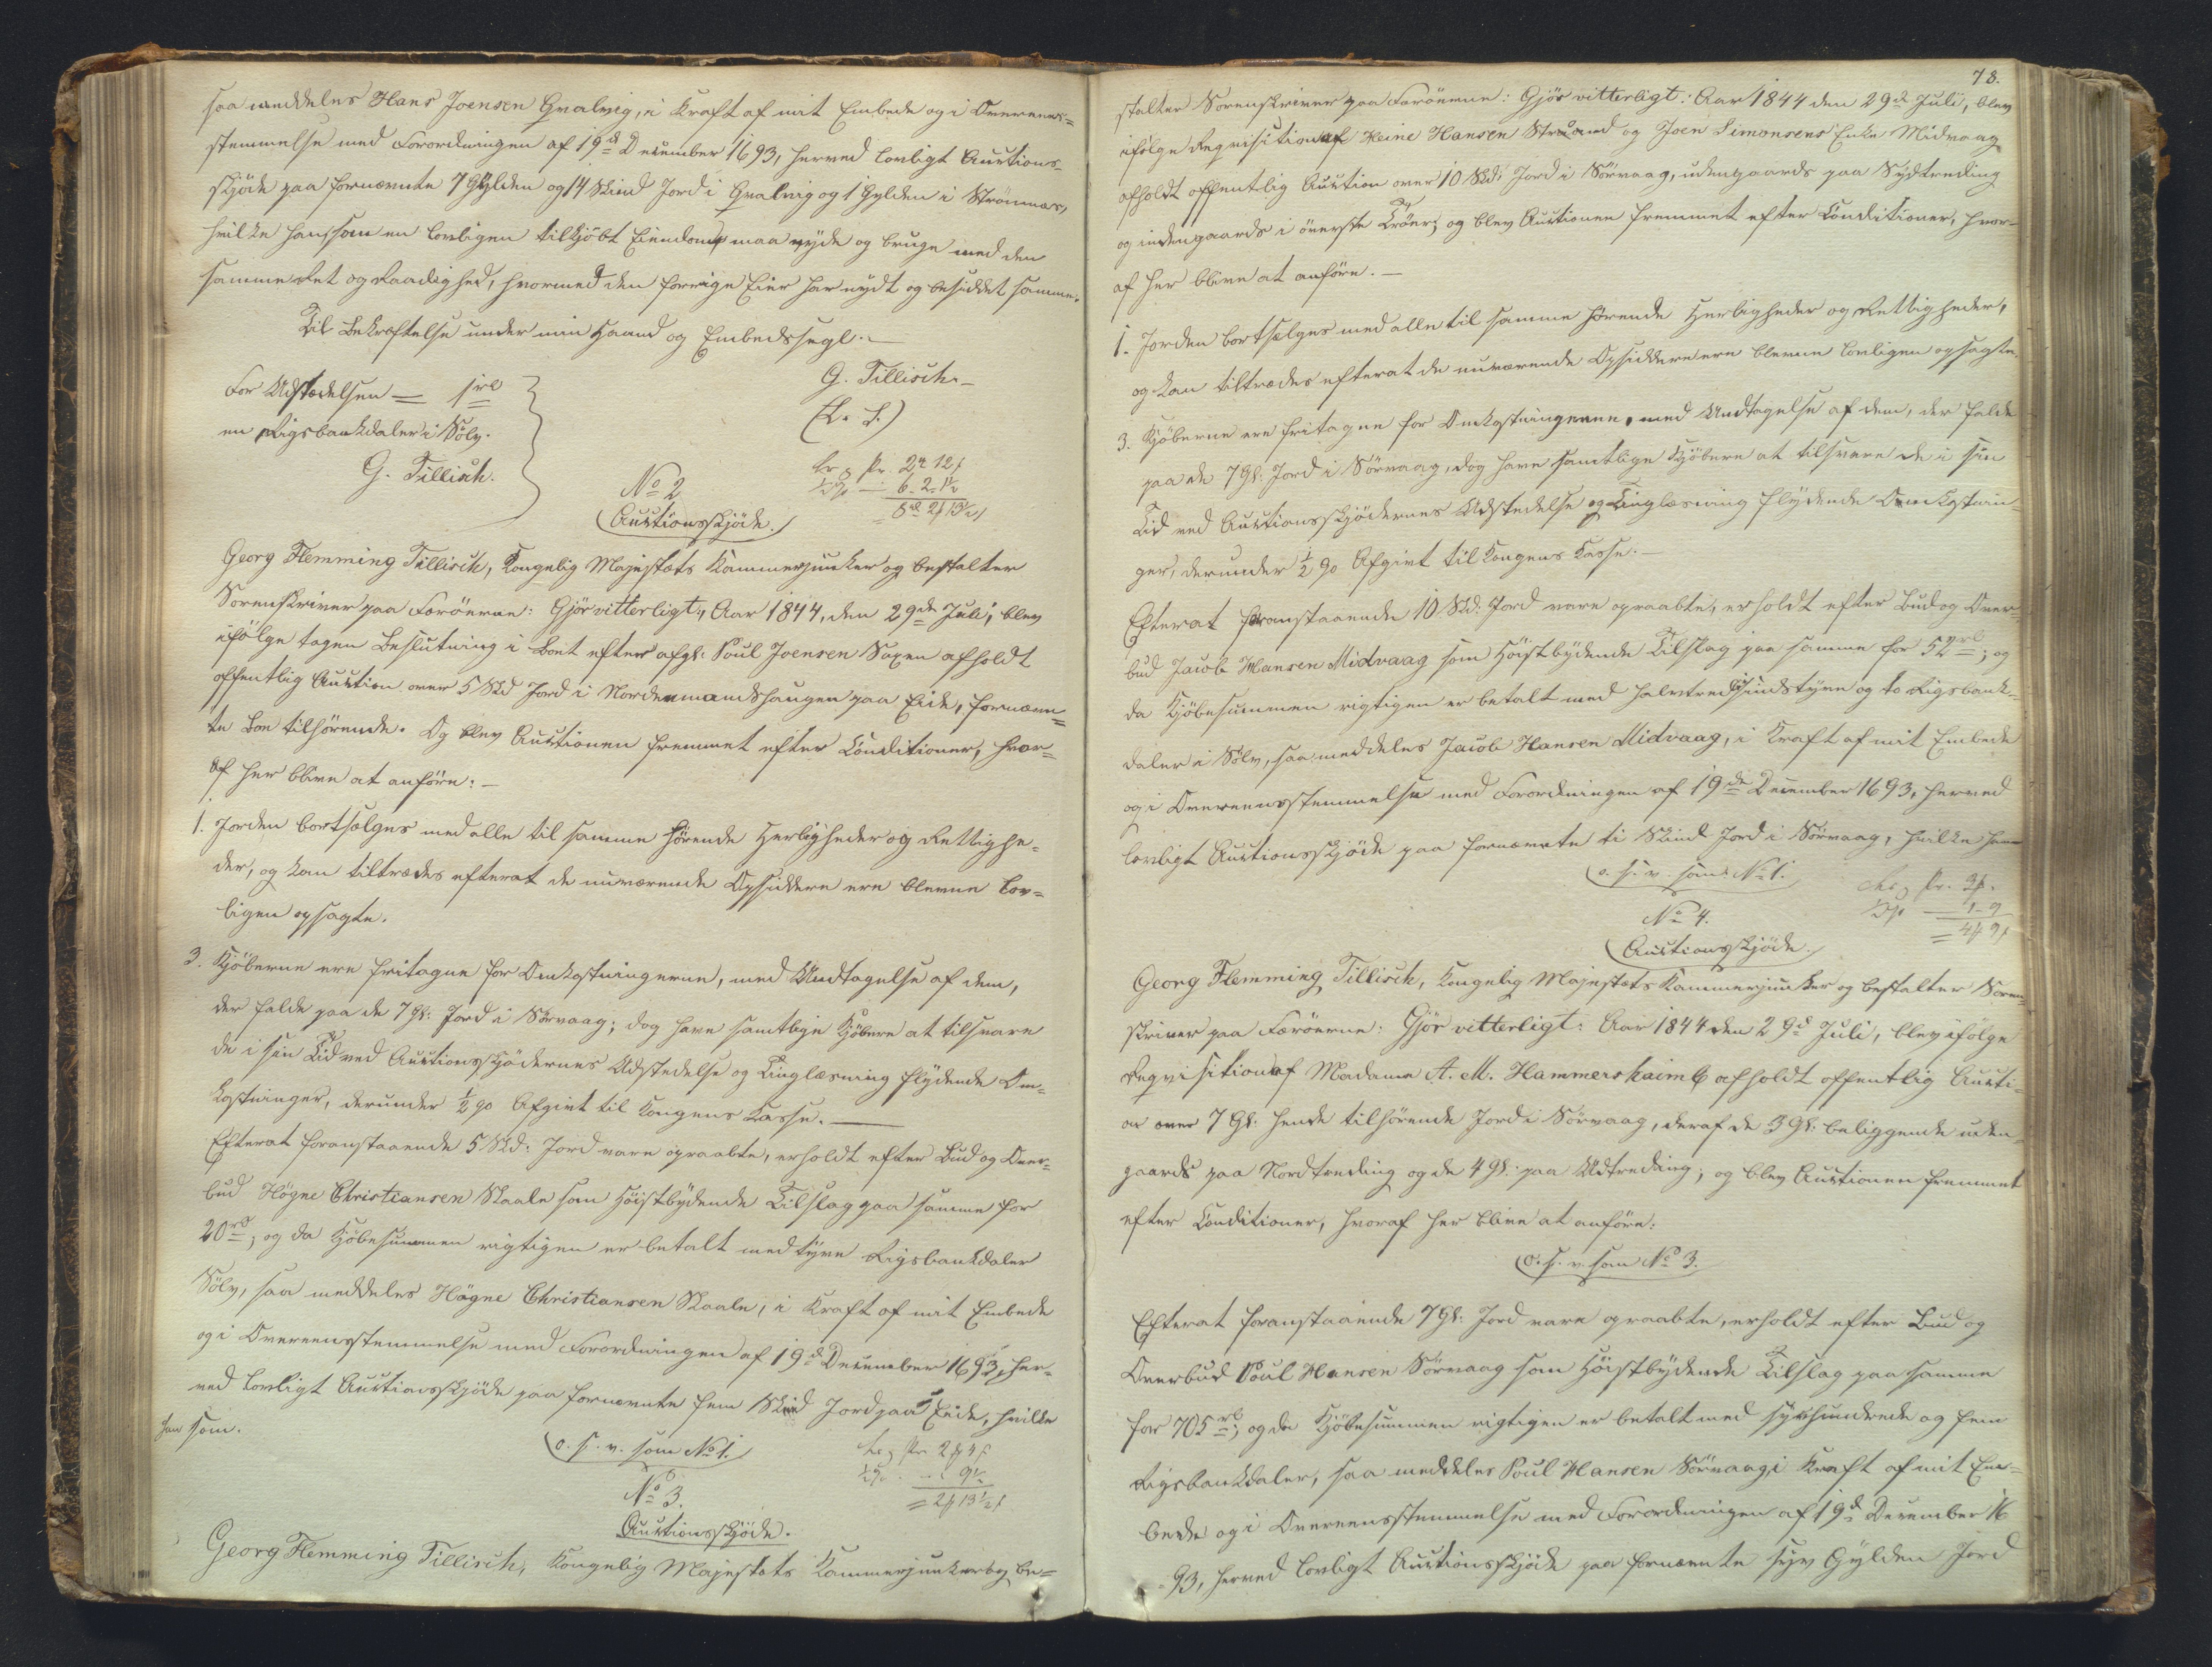 saa meddeles Hans Joensen Qvalvig, i Kraft af mit Embede og i Overeens=
stemmelse med Forordningen af 19de December 1693, herved lovligt Auctions-
skjøde paa fornævnte 7 Gylden og 14 Skind Jord i Qvalvig og 1 Gylden i Strømnæs,
hvilke han som en lovligen tilkjøbt Eiendom maa nyde og bruge med den
samme Ret og Raadighed, hvormed den forrige Eier har nydt og besiddet samme.
Til Bekræftelse under min Haand og Embedssegl.
G. Tillisch.
(L. S.)
For Udstædelsen = 1 rbd
en Rigsbankdaler i Sølv.
G. Tillisch.
No 2
Auctionsskjøde.
Georg Flemming Tillisch, Kongelig Majestæts Kammerjunker og bestalter
Sorenskriver paa Færöerne: Gjör vitterligt, Aar 1844, den 29de Juli, blev
ifölge tagen Beslutning i Boet efter afgl. Poul Joensen Saxen afholdt
offentlig Auction over 5 Skd Jord i Nordenmandshaugen paa Eide, fornævn=
te Boe tilhörende. Og blev Auctionen fremmet efter Conditioner, hvor=
af her blive at anföre:-
1. Jorden bortsælges med alle til samme hörende Herligheder og Rettighe=
der, og kan tiltrædes efterat de nuværende Opsiddere ere blevne lov=
ligen opsagte.
3. Kjöberne ere fritagne for Omkostningerne, med Undtagelse af dem,
der falde paa de 7 Gl: Jord i Sörvaag; dog have samtlige Kjöbere at tilsvare
de i sin Tid ved Auctionsskjödernes Udstedelse og Tinglæsning flydende Om-
kostninger, derunder ½ % Afgivt til Kongens Kasse.
Efterat foranstaaende 5 Skd: Jord vare opraabte, erholdt efter Bud og Over-
bud Högne Christiansen Skaale som Höistbydende Tilslag paa samme for
20 rbd; og da Kjöbesummen rigtigen er betalt med tyve Rigsbankdaler
Sölv, saa meddeles Högne Christiansen Skaale, i Kraft af mit Embede
og i Overeensstemmelse med Forordningen af 19d December 1693, her-
ved lovligt Auctionsskjöde paa fornævnte fem Skind Jord paa Eide, hvilke
han som.
o. s. v. som No 1.
No 3.
Auctionsskjöde.
Georg Flemming Tillisch, Kongelig Majestæts Kammerjunker og be=
78.
stalter Sorenskriver paa Færöerne: Gjör vitterligt: Aar 1844 den 29de Juli, blev
ifölge Reqvisition af Heine Hansen Strand og Joen Simonsens Enke Midvaag
afholdt offentlig Auction over 10 Skd: Jord i Sörvaag, udengaards paa Sydtreding
og indengaards i överste Tröer; og blev Auctionen fremmet efter Conditioner, hvor-
af her blive at anföre.-
1. Jorden bortsælges med alle til samme hörende Herligheder og Rettigheder,
og kan tiltrædes efterat de nuværende Opsiddere ere blevne lovligen opsagte.
3. Kjöberne ere fritagne for Omkostningerne, med Undtagelse af dem, der falde
paa de 7 Gl: Jord i Sörvaag, dog have samtlige Kjöbere at tilsvare de i sin
Tid ved Auctionsskjödernes Udstedelse og Tinglæsning flydende Omkostnin-
ger, derunder ½ % Afgivt til Kongens Kasse.-
Efterat foranstaaende 10 Skd: Jord vare opraabte, erholdt efter Bud og Over-
bud Jacob Hansen Midvaag som Höistbydende Tilslag paa samme for 52 rbd; og
da Kjöbesummen rigtigen er betalt med halvtredsindstyve og to Rigsbank-
daler i Sölv, saa meddeles Jacob Hansen Midvaag, i Kraft af mit Embede
og i Overeensstemmelse med Forordningen af 19de December 1693, herved
lovligt Auctionsskjöde paa fornævnte ti Skind Jord i Sörvaag, hvilke han
o. s. v. som No 1.
No 4.
Auctionsskjöde.
Georg Flemming Tillisch, Kongelig Majestæts Kammerjunker og bestalter Soren-
skriver paa Færöerne: Gjör vitterligt: Aar 1844 den 29d Juli, blev ifölge
Reqvisition af Madame A. M. Hammershaimb afholdt offentlig Aucti-
on over 7 Gl: hende tilhörende Jord i Sörvaag, deraf de 3 Gl: beliggende uden-
gaards paa Nordtreding og de 4 Gl: paa Udtreding; og blev Auctionen fremmet
efter Conditioner, hvoraf her blive at anföre:
o. s. v. som No 3.
Efterat foranstaaende 7 Gl: Jord vare opraabte, erholdt efter Bud og
Overbud Poul Hansen Sörvaag som Höistbydende Tilslag paa samme
for 705 rbd; og da Kjöbesummen rigtigen er betalt med syvhundrede og fem
Rigsbankdaler, saa meddeles Poul Hansen Sörvaag, i Kraft af mit Em=
bede og i Overeensstemmelse med Forordningen af 19d December 16
93, herved lovligt Auctionsskjöde paa fornævnte syv Gylden Jord